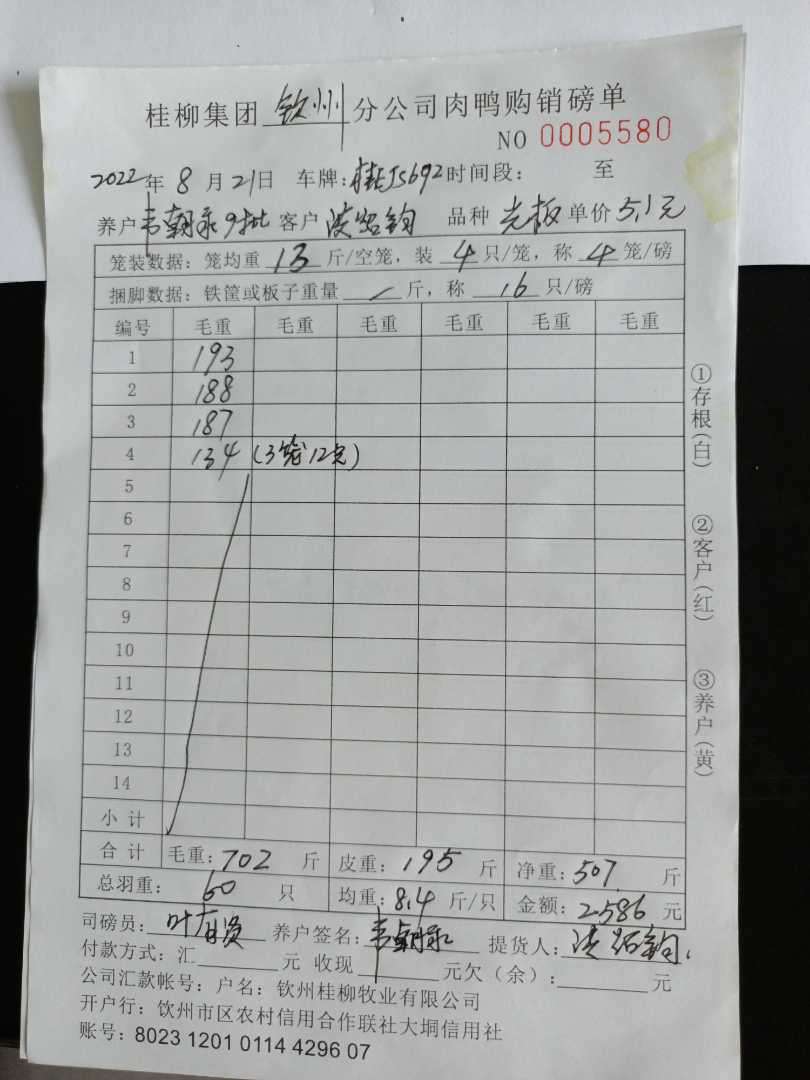 桂柳集团 钦州 分公司肉鸭购销磅单
NO 0005580
2022年8月21日 车牌:桂EJ5692 时间段: 至
养户 韦朝永9批 客户 凌绍钧 品种 光板 单价 5.1元
笼装数据: 笼均重 13 斤/空笼, 装 4 只/笼, 称 4 笼/磅
捆脚数据: 铁筐或板子重量 / 斤, 称 16 只/磅
编号 毛重 毛重 毛重 毛重 毛重 毛重
1 193
2 188
3 187
4 134 (3笼12只)
5
6
7
8
9
10
11
12
13
14
小计
合计 毛重: 702 斤 皮重: 195 斤 净重: 507 斤
总羽重: 60 只 均重: 8.4 斤/只 金额: 2586 元
司磅员: 养户签名: 韦朝永 提货人: 凌绍钧
付款方式: 汇 元 收现 元欠(余): 元
公司汇款帐号: 户名: 钦州桂柳牧业有限公司
开户行: 钦州市区农村信用合作联社大垌信用社
账号: 8023 1201 0114 4296 07
①存根(白)
②客户(红)
③养户(黄)